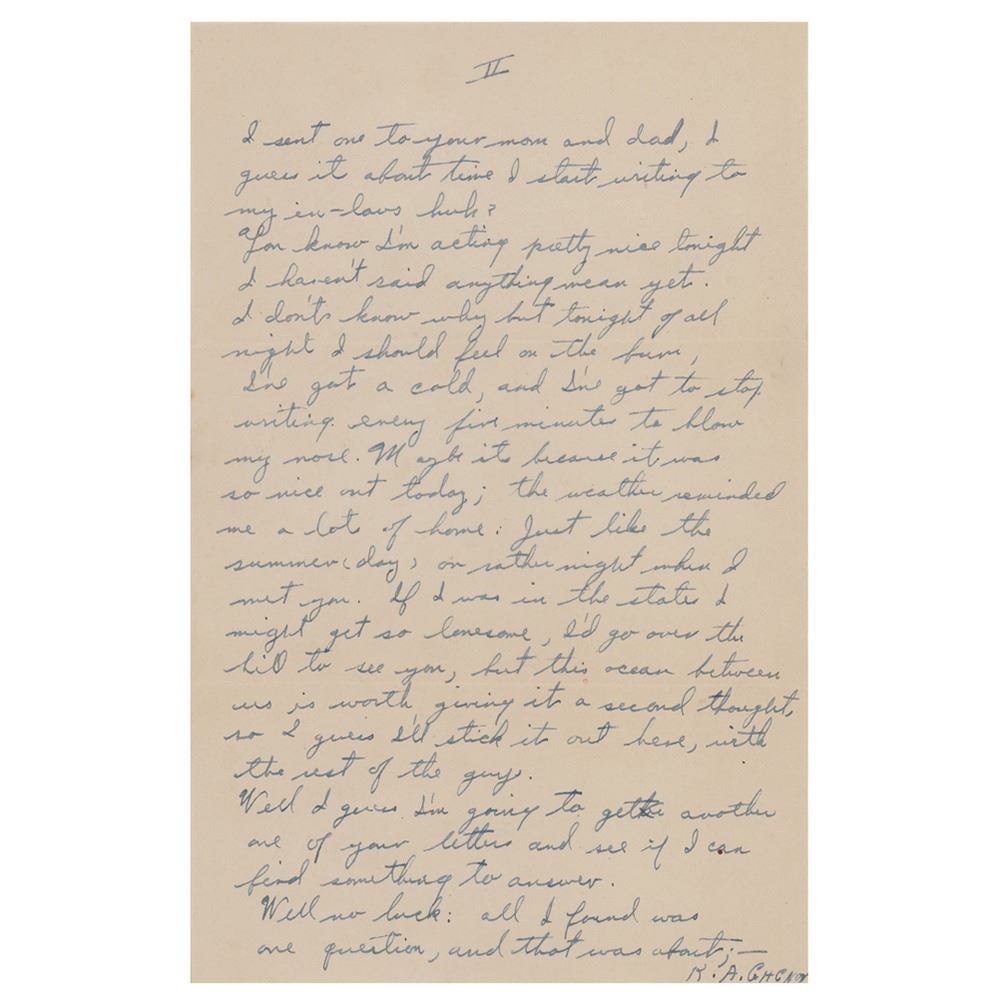 II
I sent one to your mom and dad, I
guess it about time I start writing to
my in-laws huh?
You know I'm acting pretty nice tonight
I haven't said anything mean yet.
I don't know why but tonight of all
night I should feel on the bum,
I've got a cold, and I've got to stop
writing every five minutes to blow
my nose. Maybe its because it was
so nice out today; the weather reminded
me a lot of home: Just like the
summer (day) or rather night when I
met you. If I was in the states I
might get so lonesome, I'd go over the
hill to see you, but this ocean between
us is worth giving it a second thought,
so I guess I'll stick it out here, with
the rest of the guys.
Well I guess I'm going to get another
one of your letters and see if I can
find something to answer.
Well no luck: all I found was
one question, and that was about;—
R. A.